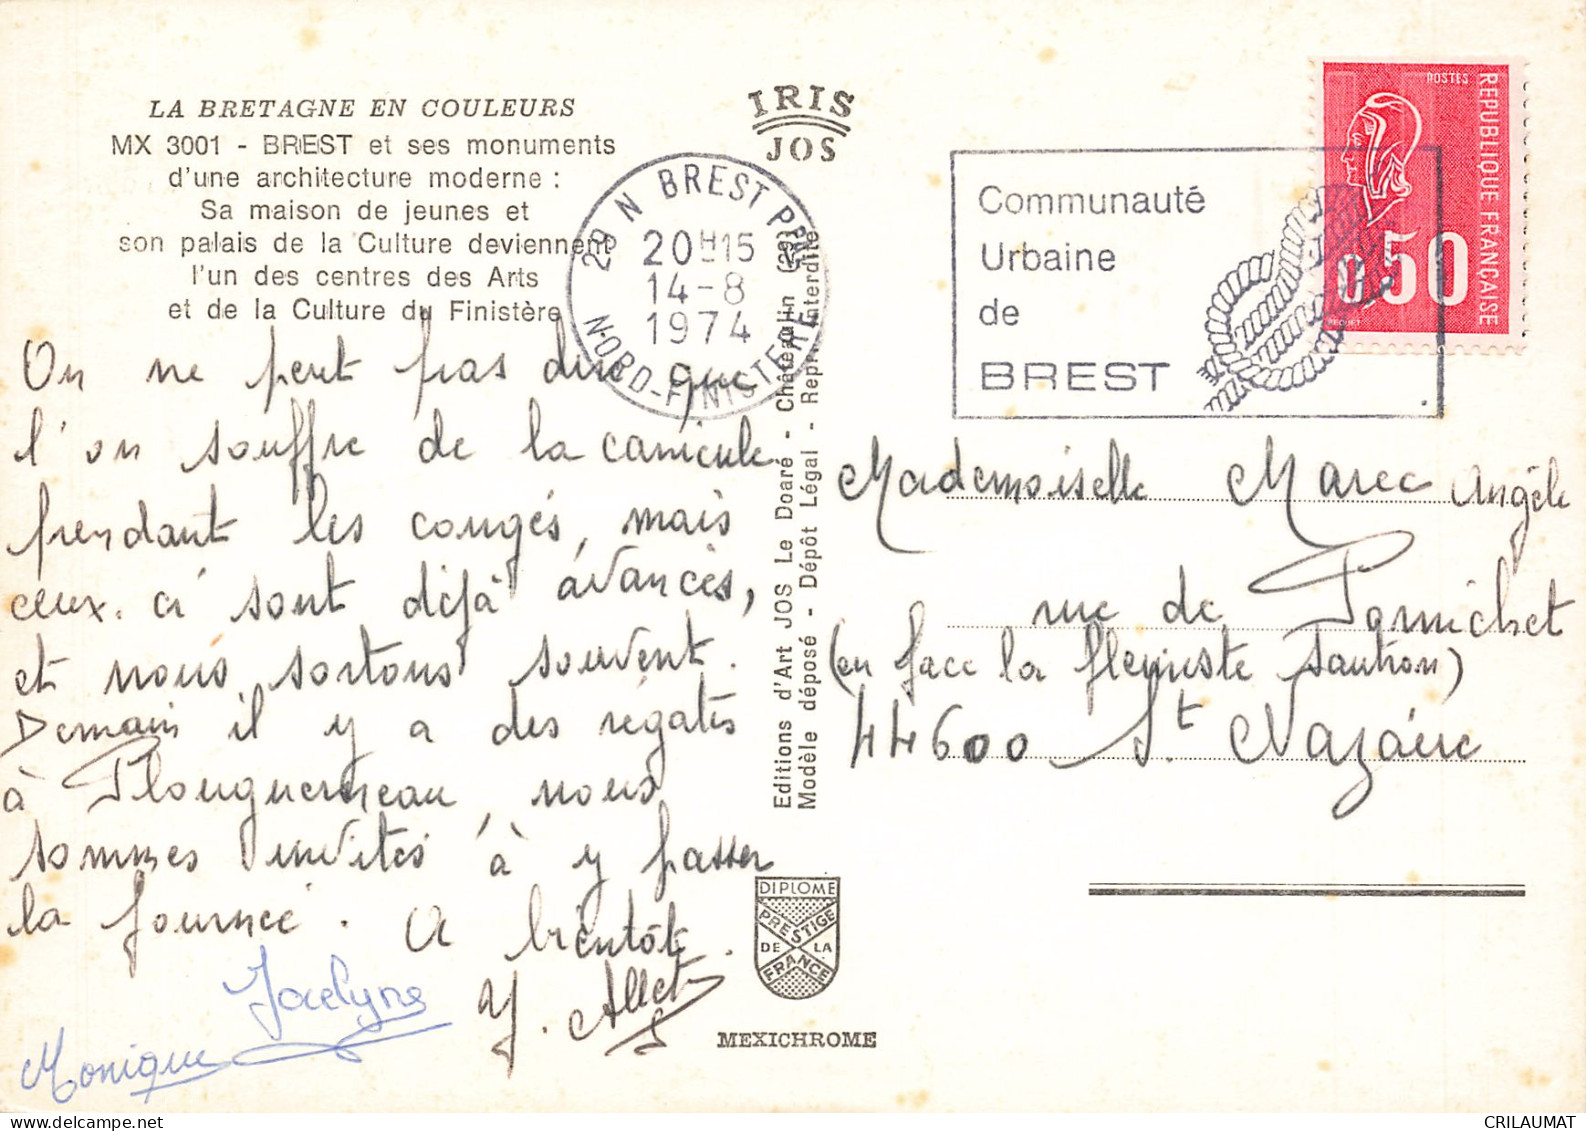 LA BRETAGNE EN COULEURS
MX 3001 - BREST et ses monuments
d'une architecture moderne :
Sa maison de jeunes et
son palais de la Culture deviennent
l'un des centres des Arts
et de la Culture du Finistère
On ne peut pas dire que
l'on souffre de la canicule
pendant les congés, mais
ceux-ci sont déjà avancés,
et nous sortons souvent.
Demain il y a des régates
à Plouguerneau, nous
sommes invités à y passer
la journée. A bientôt.
Jocelyne
Y. Allet
Monique
IRIS
JOS
29 N BREST PPAL
20H15
14-8
1974
NORD-FINISTERE
Editions d'Art JOS Le Doaré - Châteaulin (29)
Modèle déposé - Dépôt Légal - Repr. interdite
DIPLOME
PRESTIGE
DE LA
FRANCE
MEXICHROME
Communauté
Urbaine
de
BREST
POSTES
REPUBLIQUE FRANÇAISE
0,50
BEQUET
Mademoiselle Marec Angèle
rue de Pornichet
(en face la fleuriste Sautron)
44600 St. Nazaire
CRILAUMAT